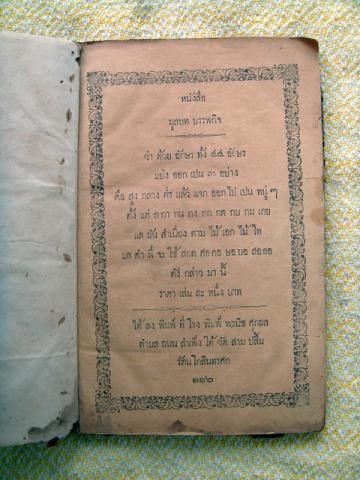 หนังสือ
มูลบท บรรพกิจ
ว่า ด้วย อักษร ทั้ง ๔๔ อักษร
แบ่ง ออก เปน ๓ อย่าง
คือ สูง กลาง ต่ำ แล้ว แจก ออก ไป เปน หมู่ ๆ
ตั้ง แต่ ก กา กน กง กก กด กบ กม เกย
แล ผัน สำเนียง ตาม ไม้ เอก ไม้ โท
แล คำ ที่ จะ ใช้ สกด
ดัง กล่าว มา นี้
ราคา เล่ม ละ หนึ่ง บาท
ได้ ลง พิมพ์ ที่ โรง พิมพ์ พานิช ศุภผล
ตำบล ถนน สำเพ็ง ใต้ วัด สาม ปลื้ม
รัตนโกสินทรศก
๑๑๖